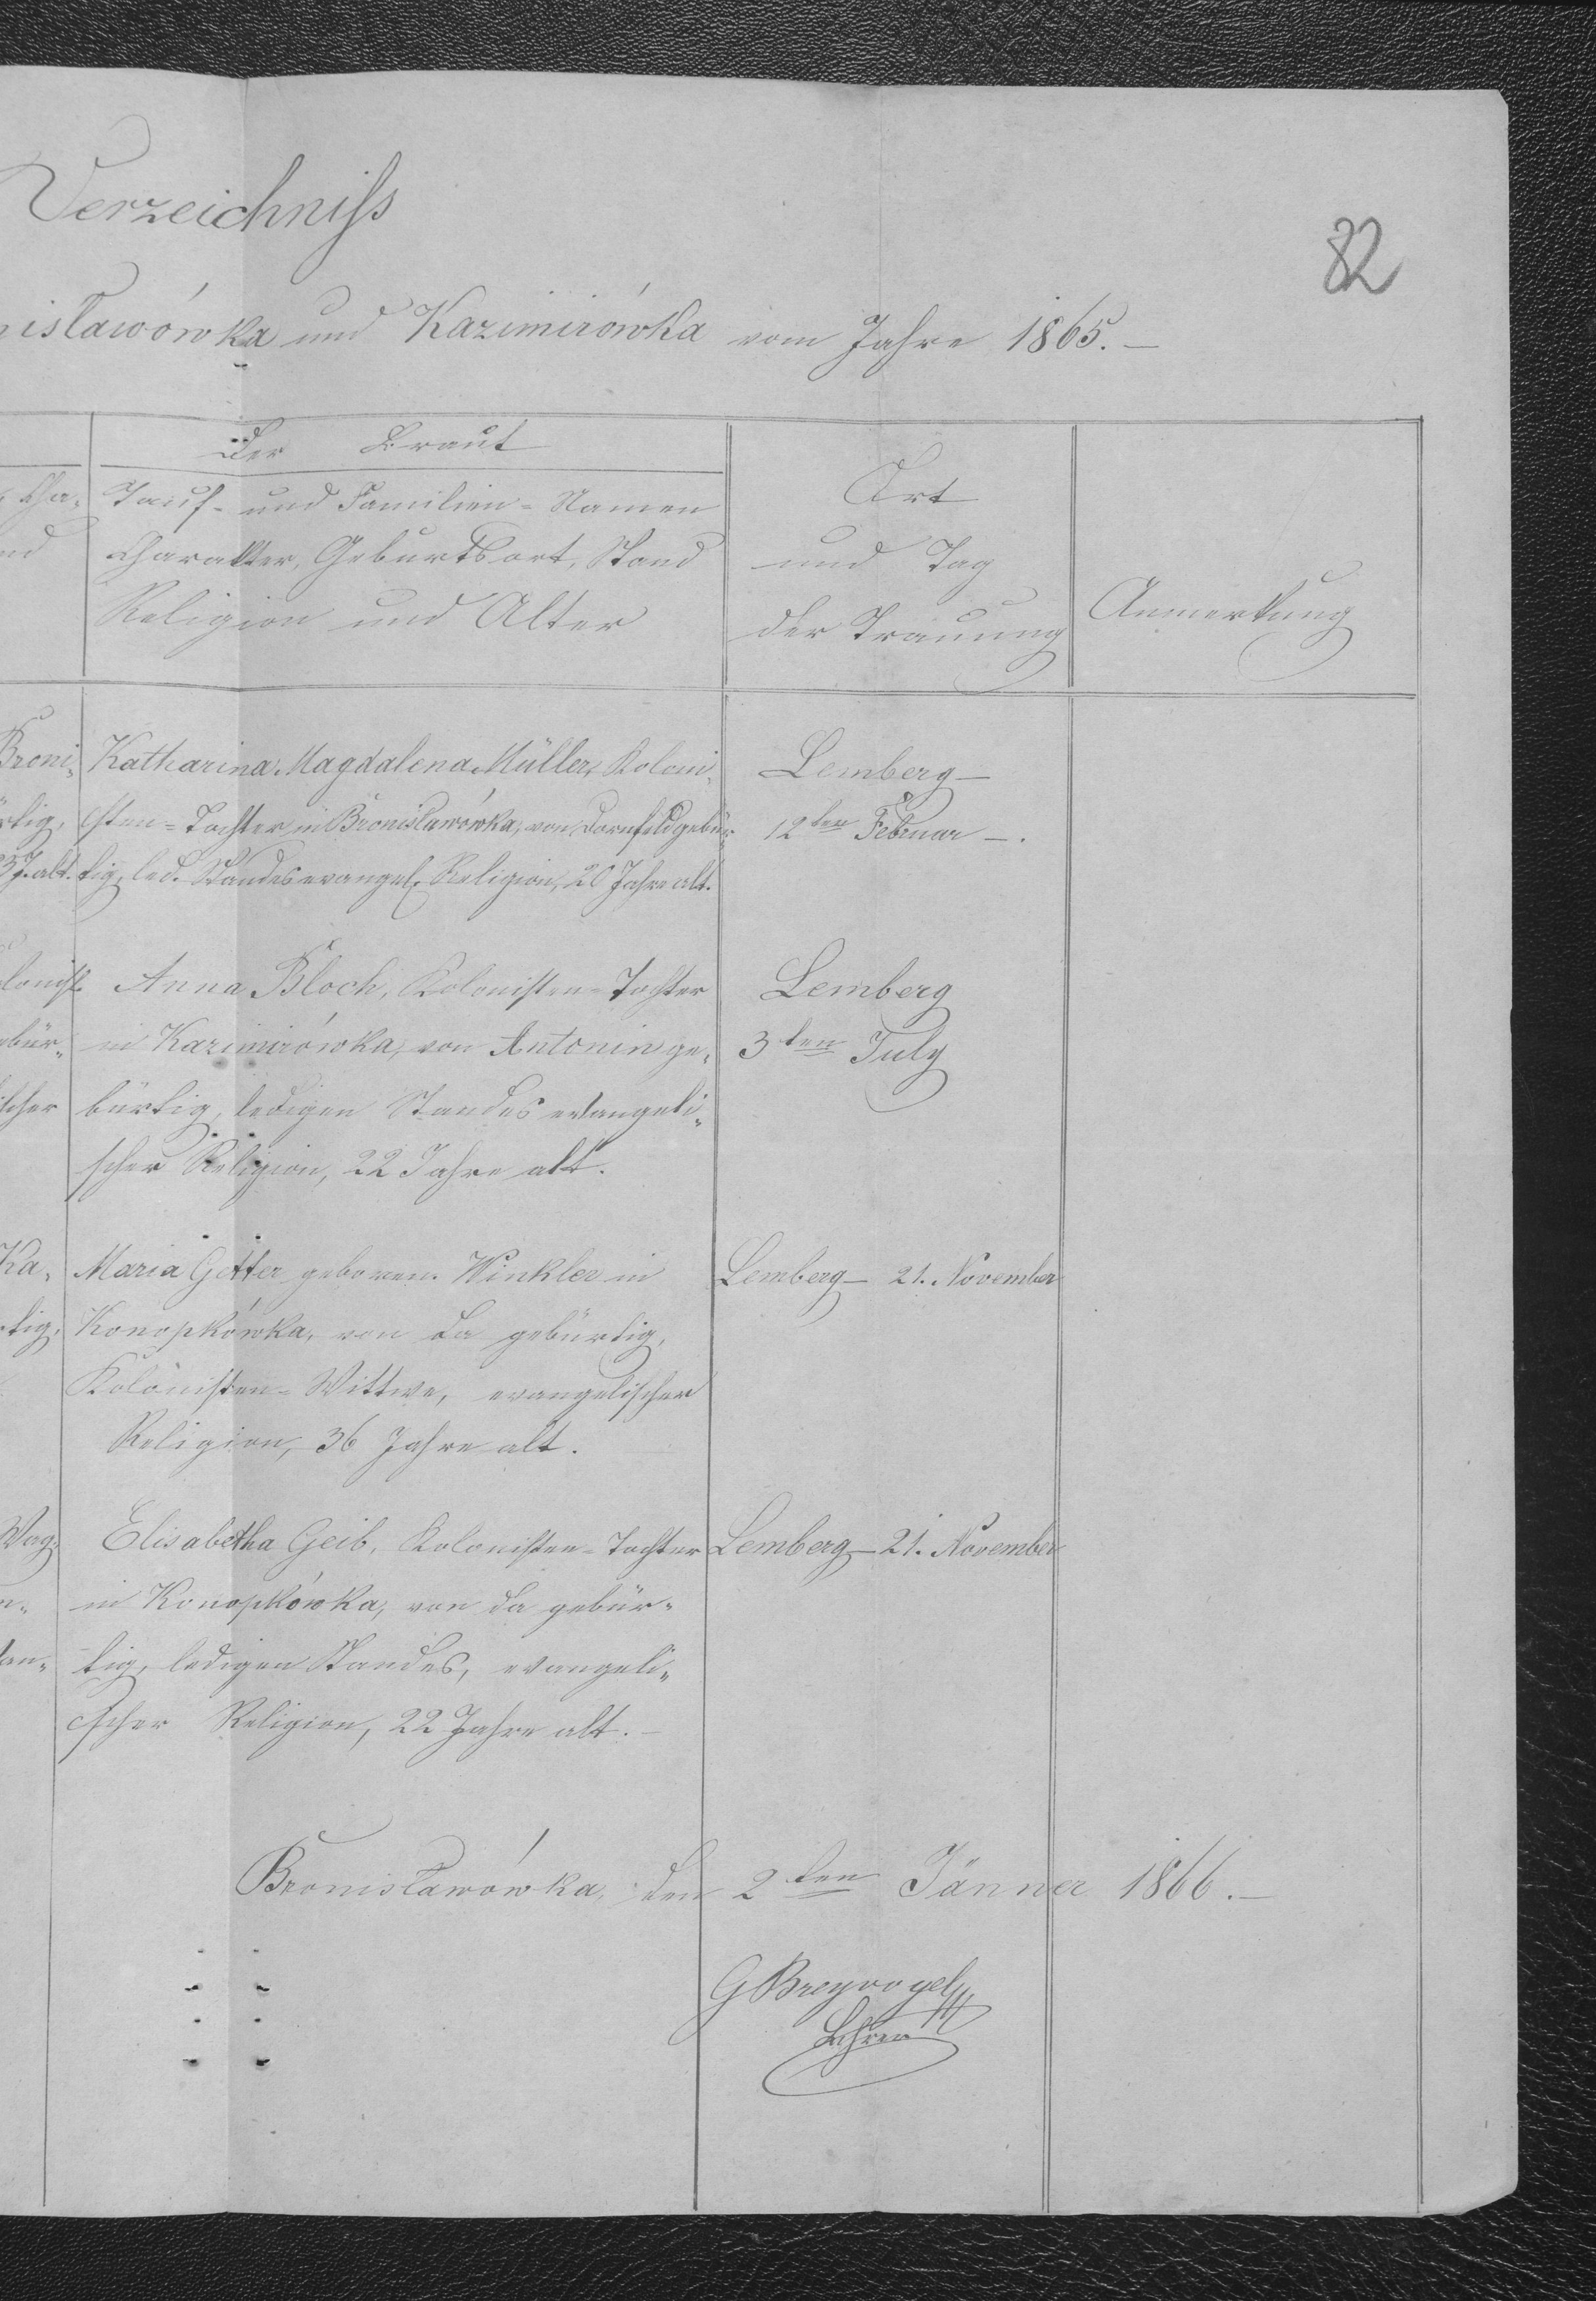 Verzeichniss
82
nisławówka und Kazimirówka vom Jahre 1865.—
Der Braut
Tauf- und Familien=Namen
Charakter, Geburtsort, Stand
Religion und Alter
Ort
und Tag
der Trauung
Anmerkung
Cha-
nd
Broni-
rtig,
J. alt.
Katharina Magdalena Müller, Koloni-
sten=Tochter in Bronisławówka, von Dornfeld gebür-
tig, led. Standes evangel. Religion, 20 Jahre alt.
Lemberg—
12ten Februar—.
olonist
ebür-
scher
Anna Bloch, Kolonisten=Tochter
in Kazimirówka, von Antonin ge-
bürtig, ledigen Standes evangeli-
scher Religion, 22 Jahre alt.
Lemberg
3ten July
Ka-
rtig,
Maria Getter geboren. Winkler in
Konopkówka, von da gebürtig,
Kolonisten=Wittwe, evangelischer
Religion, 36 Jahre alt.
Lemberg— 21. November
Wag-
n-
an-
Elisabetha Geib, Kolonisten=Tochter
in Konopkówka, von da gebür-
tig, ledigen Standes, evangeli-
scher Religion, 22 Jahre alt.—
Lemberg—21. November
Bronisławówka, den 2ten Jänner 1866.—
G Breyvogel
Lehrer